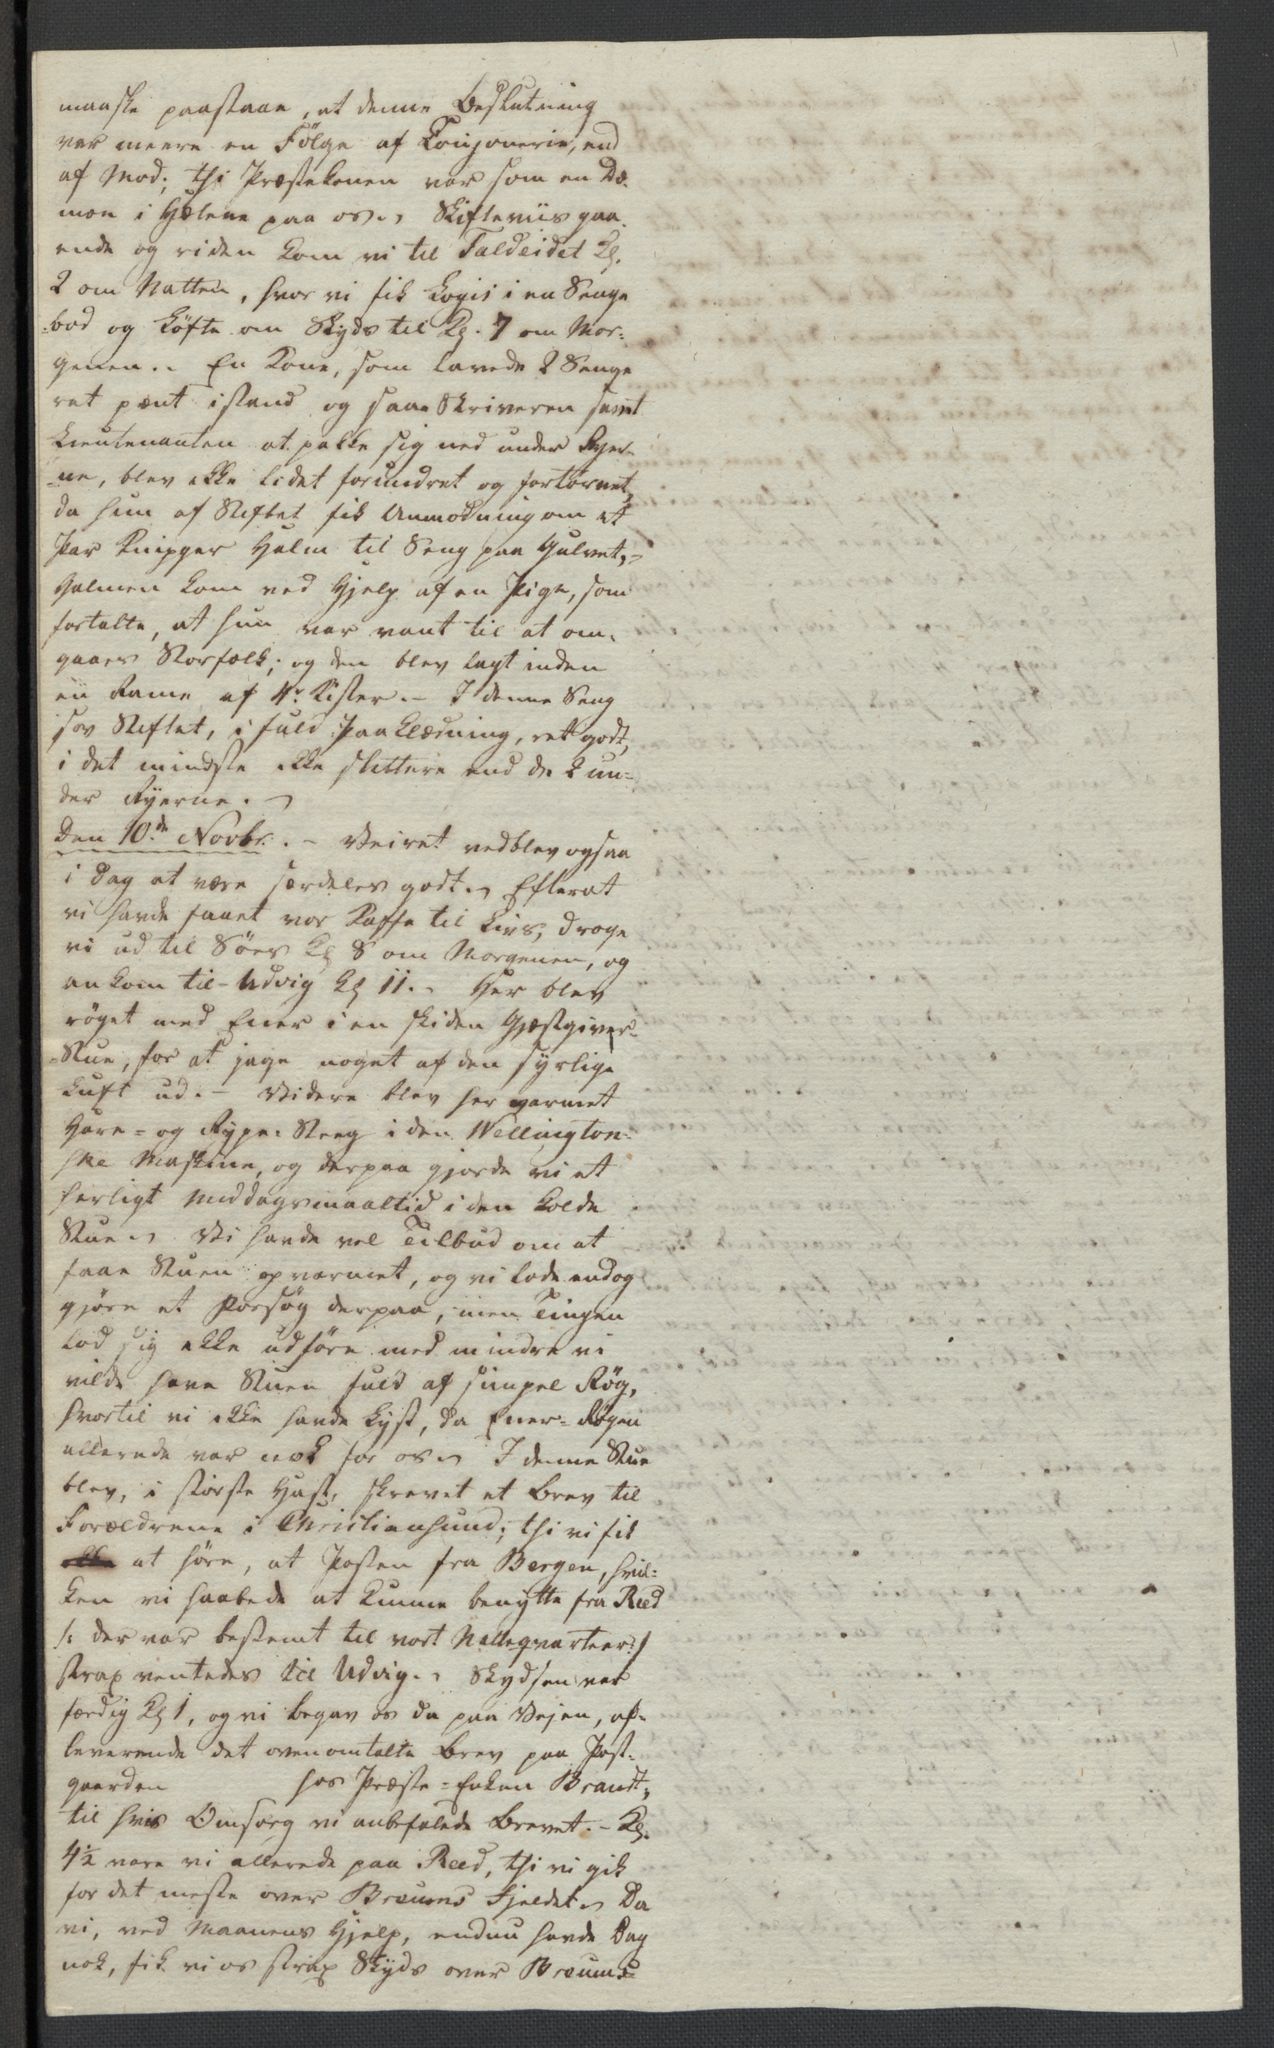 maaske paastaae, at denne Beslutning
var meere en Følge af Coujonerie, end
af Mod; thi Præstekonen var som en Dæ-
mon i Hælene paa os. Skifteviis gaa-
ende og riden kom vi til Faldeidet Kl.
2 om Natten, hvor vi fik Logis i en Senge
-bod og kjøfte om Skyds til Kl. 7 om Mor-
genen. En Kone, som lavede 2 Senge
ret pænt istand og saae Skriveren samt
Lieutenanten at pakke sig ned under Ryer-
ne, blev ikke lidet forundret og fortørnet,
da hun af Stiftet fik Anmodning om et
Par Knipper Halm til Seng paa Gulvet,-
Halmen kom ved Hjelp af en Pige, som
fortalte, at hun var vant til at om-
gaaes Storfolk; og den blev lagt inden
en Rame af 4r Kister. - I denne Seng
sov Stiftet, i fuld Paaklædning, ret godt,
i det mindste ikke slettere end de 2 un-
der Ryerne. -
Den 10de Novbr. - Veiret vedblev ogsaa
i Dag at være særdeles godt. Efterat
vi havde faaet vor Kaffe til Livs, droge
vi ud til Søes Kl 8 om Morgenen, og
ankom til Udvig Kl 11. - Her blev
røget med Ener i en skiden Gjæstgiver-
-Stue, for at jage noget af den syrlige
Luft ud. - Videre blev her varmet
Hare- og Rype-Steeg i den Wellington-
ske Maskine, og derpaa gjorde vi et
herligt Middagsmaaltid i den kolde
Stue. Vi havde vel Tilbud om at
faae Stuen opvarmet, og vi lode endog
gjøre et Forsøg derpaa, men Tingen
lod sig ikke udføre med mindre vi
vilde have Stuen fuld af simpel Røg,
hvortil vi ikke havde Lyst, da Ener-Røgen
allerede var nok for os. I denne Stue
blev, i største Hast, skrevet et Brev til
Forældrene i Christiansund; thi vi fik
at høre, at Posten fra Bergen, hvil-
ken vi haabede at kunne benytte fra Reed
/: der var bestemt til vort Natteqvarteer :/
strax ventedes til Udvig. Skydsen var
færdig Kl 1, og vi begav os da paa Vejen, af-
leverende det ovenomtalte Brev paa Post-
gaarden hos Præste-Enken Brandt,
til hvis Omsorg vi anbefalede Brevet. - Kl.
4½ vare vi allerede paa Reed, thi vi gik
for det meste over Breums Fjeldet. Da
vi, ved Maanens Hjelp, endnu havde Dag
nok, fik vi os strax Skyds over Breums-